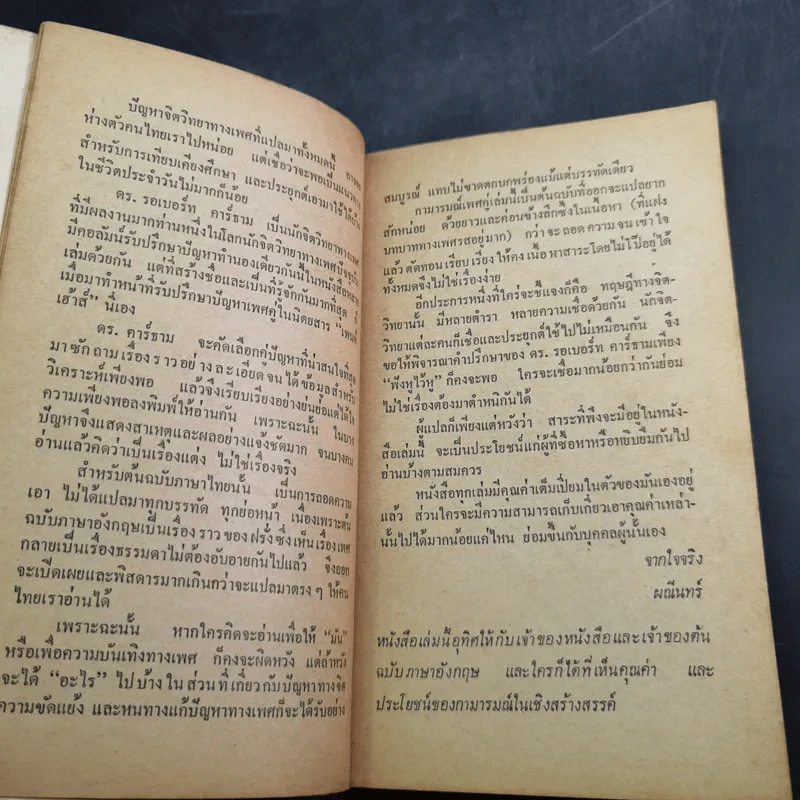 ปัญหาจิตวิทยาทางเพศที่แปลมาทั้งหมดนี้
ห่างตัวคนไทยเราไปหน่อย แต่เชื่อว่าจะพอเป็นแนวทาง
สำหรับการเทียบเคียงศึกษา และประยุกต์เอามาใช้ได้บ้าง
ในชีวิตประจำวันไม่มากก็น้อย
ดร. รอเบอร์ท คาร์ธาม เป็นนักจิตวิทยาทางเพศ
ที่มีผลงานมากท่านหนึ่งในโลกนักจิตวิทยาทางเพศปัจจุบัน
มีคอลัมน์รับปรึกษาปัญหาทำนองเดียวกันนี้ในหนังสือหลาย
เล่มด้วยกัน แต่ที่สร้างชื่อและเป็นที่รู้จักกันมากที่สุด ก็
เมื่อมาทำหน้าที่รับปรึกษาปัญหาเพศคู่ในนิตยสาร “เพนท์
เฮ้าส์” นี่เอง
ดร. คาร์ธาม จะคัดเลือกคู่ปัญหาที่น่าสนใจที่สุด
มาซักถามเรื่องราวอย่างละเอียดจนได้ข้อมูลสำหรับ
วิเคราะห์เพียงพอ แล้วจึงเรียบเรียงอย่างย่นย่อแต่ได้ใจ
ความเพียงพอลงพิมพ์ให้อ่านกัน เพราะฉะนั้น ในบาง
ปัญหาจึงแสดงสาเหตุและผลอย่างแจ้งชัดมาก จนบางคน
อ่านแล้วคิดว่าเป็นเรื่องแต่ง ไม่ใช่เรื่องจริง
สำหรับต้นฉบับภาษาไทยนั้น เป็นการถอดความ
เอา ไม่ได้แปลมาทุกบรรทัด ทุกย่อหน้า เนื่องเพราะต้น
ฉบับภาษาอังกฤษเป็นเรื่องราวของฝรั่งซึ่งเห็นเรื่องเพศ
กลายเป็นเรื่องธรรมดาไม่ต้องอับอายกันไปแล้ว จึงออก
จะเปิดเผยและพิสดารมากเกินกว่าจะแปลมาตรง ๆ ให้คน
ไทยเราอ่านได้
เพราะฉะนั้น หากใครคิดจะอ่านเพื่อให้ “มัน”
หรือเพื่อความบันเทิงทางเพศ ก็คงจะผิดหวัง แต่ถ้าหวัง
จะได้ “อะไร” ไปบ้างในส่วนที่เกี่ยวกับปัญหาทางจิต
ความขัดแย้ง และหนทางแก้ปัญหาทางเพศก็จะได้รับอย่าง
สมบูรณ์ แทบไม่ขาดตกบกพร่องแม้แต่บรรทัดเดียว
กามารมณ์เพศคู่เล่มนี้เป็นต้นฉบับที่ออกจะแปลยาก
สักหน่อย ด้วยยาวและค่อนข้างลึกซึ้งในเนื้อหา (ที่แฝง
บทบาททางเพศรสอยู่มาก) กว่าจะถอดความจนเข้าใจ
แล้วตัดทอนเรียบเรียงให้คงเนื้อหาสาระโดยไม่โป๊อยู่ได้
ทั้งหมดจึงไม่ใช่เรื่องง่าย
อีกประการหนึ่งที่ใคร่จะชี้แจงก็คือ ทฤษฎีทางจิต-
วิทยานั้น มีหลายตำรา หลายความเชื่อด้วยกัน นักจิต-
วิทยาแต่ละคนก็เชื่อและประยุกต์ใช้ไปไม่เหมือนกัน จึง
ขอให้พิจารณาคำปรึกษาของ ดร. รอเบอร์ท คาร์ธามเพียง
“ฟังหูไว้หู” ก็คงจะพอ ใครจะเชื่อมากน้อยกว่ากันย่อม
ไม่ใช่เรื่องต้องมาตำหนิกันได้
ผู้แปลก็เพียงแต่หวังว่า สาระที่พึงจะมีอยู่ในหนัง-
สือเล่มนี้ จะเป็นประโยชน์แก่ผู้ที่ซื้อหาหรือหยิบยืมกันไป
อ่านบ้างตามสมควร
หนังสือทุกเล่มมีคุณค่าเต็มเปี่ยมในตัวของมันเองอยู่
แล้ว ส่วนใครจะมีความสามารถเก็บเกี่ยวเอาคุณค่าเหล่า-
นั้นไปได้มากน้อยแค่ไหน ย่อมขึ้นกับบุคคลผู้นั้นเอง
จากใจจริง
ผณีนทร์
หนังสือเล่มนี้อุทิศให้กับเจ้าของหนังสือและเจ้าของต้น
ฉบับภาษาอังกฤษ และใครก็ได้ที่เห็นคุณค่า และ
ประโยชน์ของกามารมณ์ในเชิงสร้างสรรค์